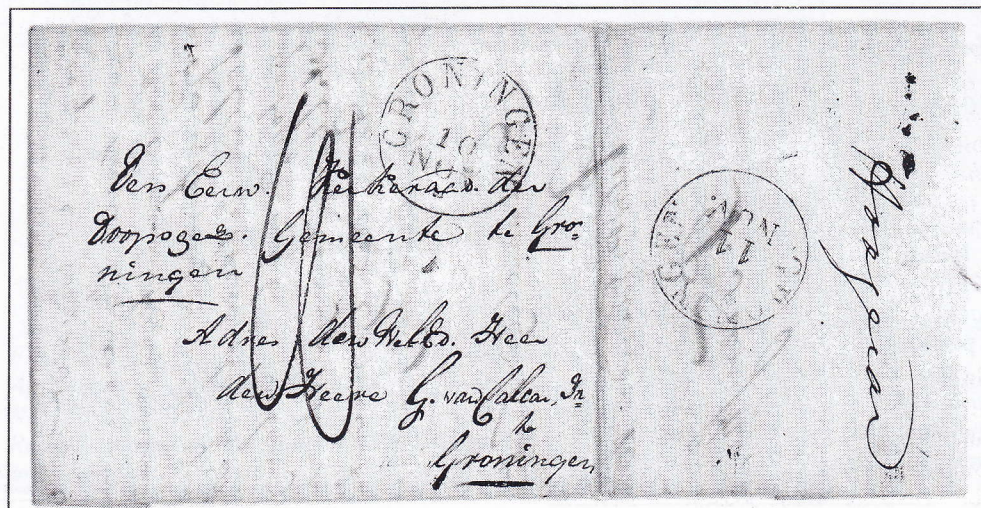 GRONINGEN
10
NOV
Den Eerw. Kerkeraad der
Doopsgez. Gemeente te Gro=
ningen
Adres den WelEd. Heer
den Heere G. van Calcar, Jr
te
Groningen
GRONINGEN
11
NOV.